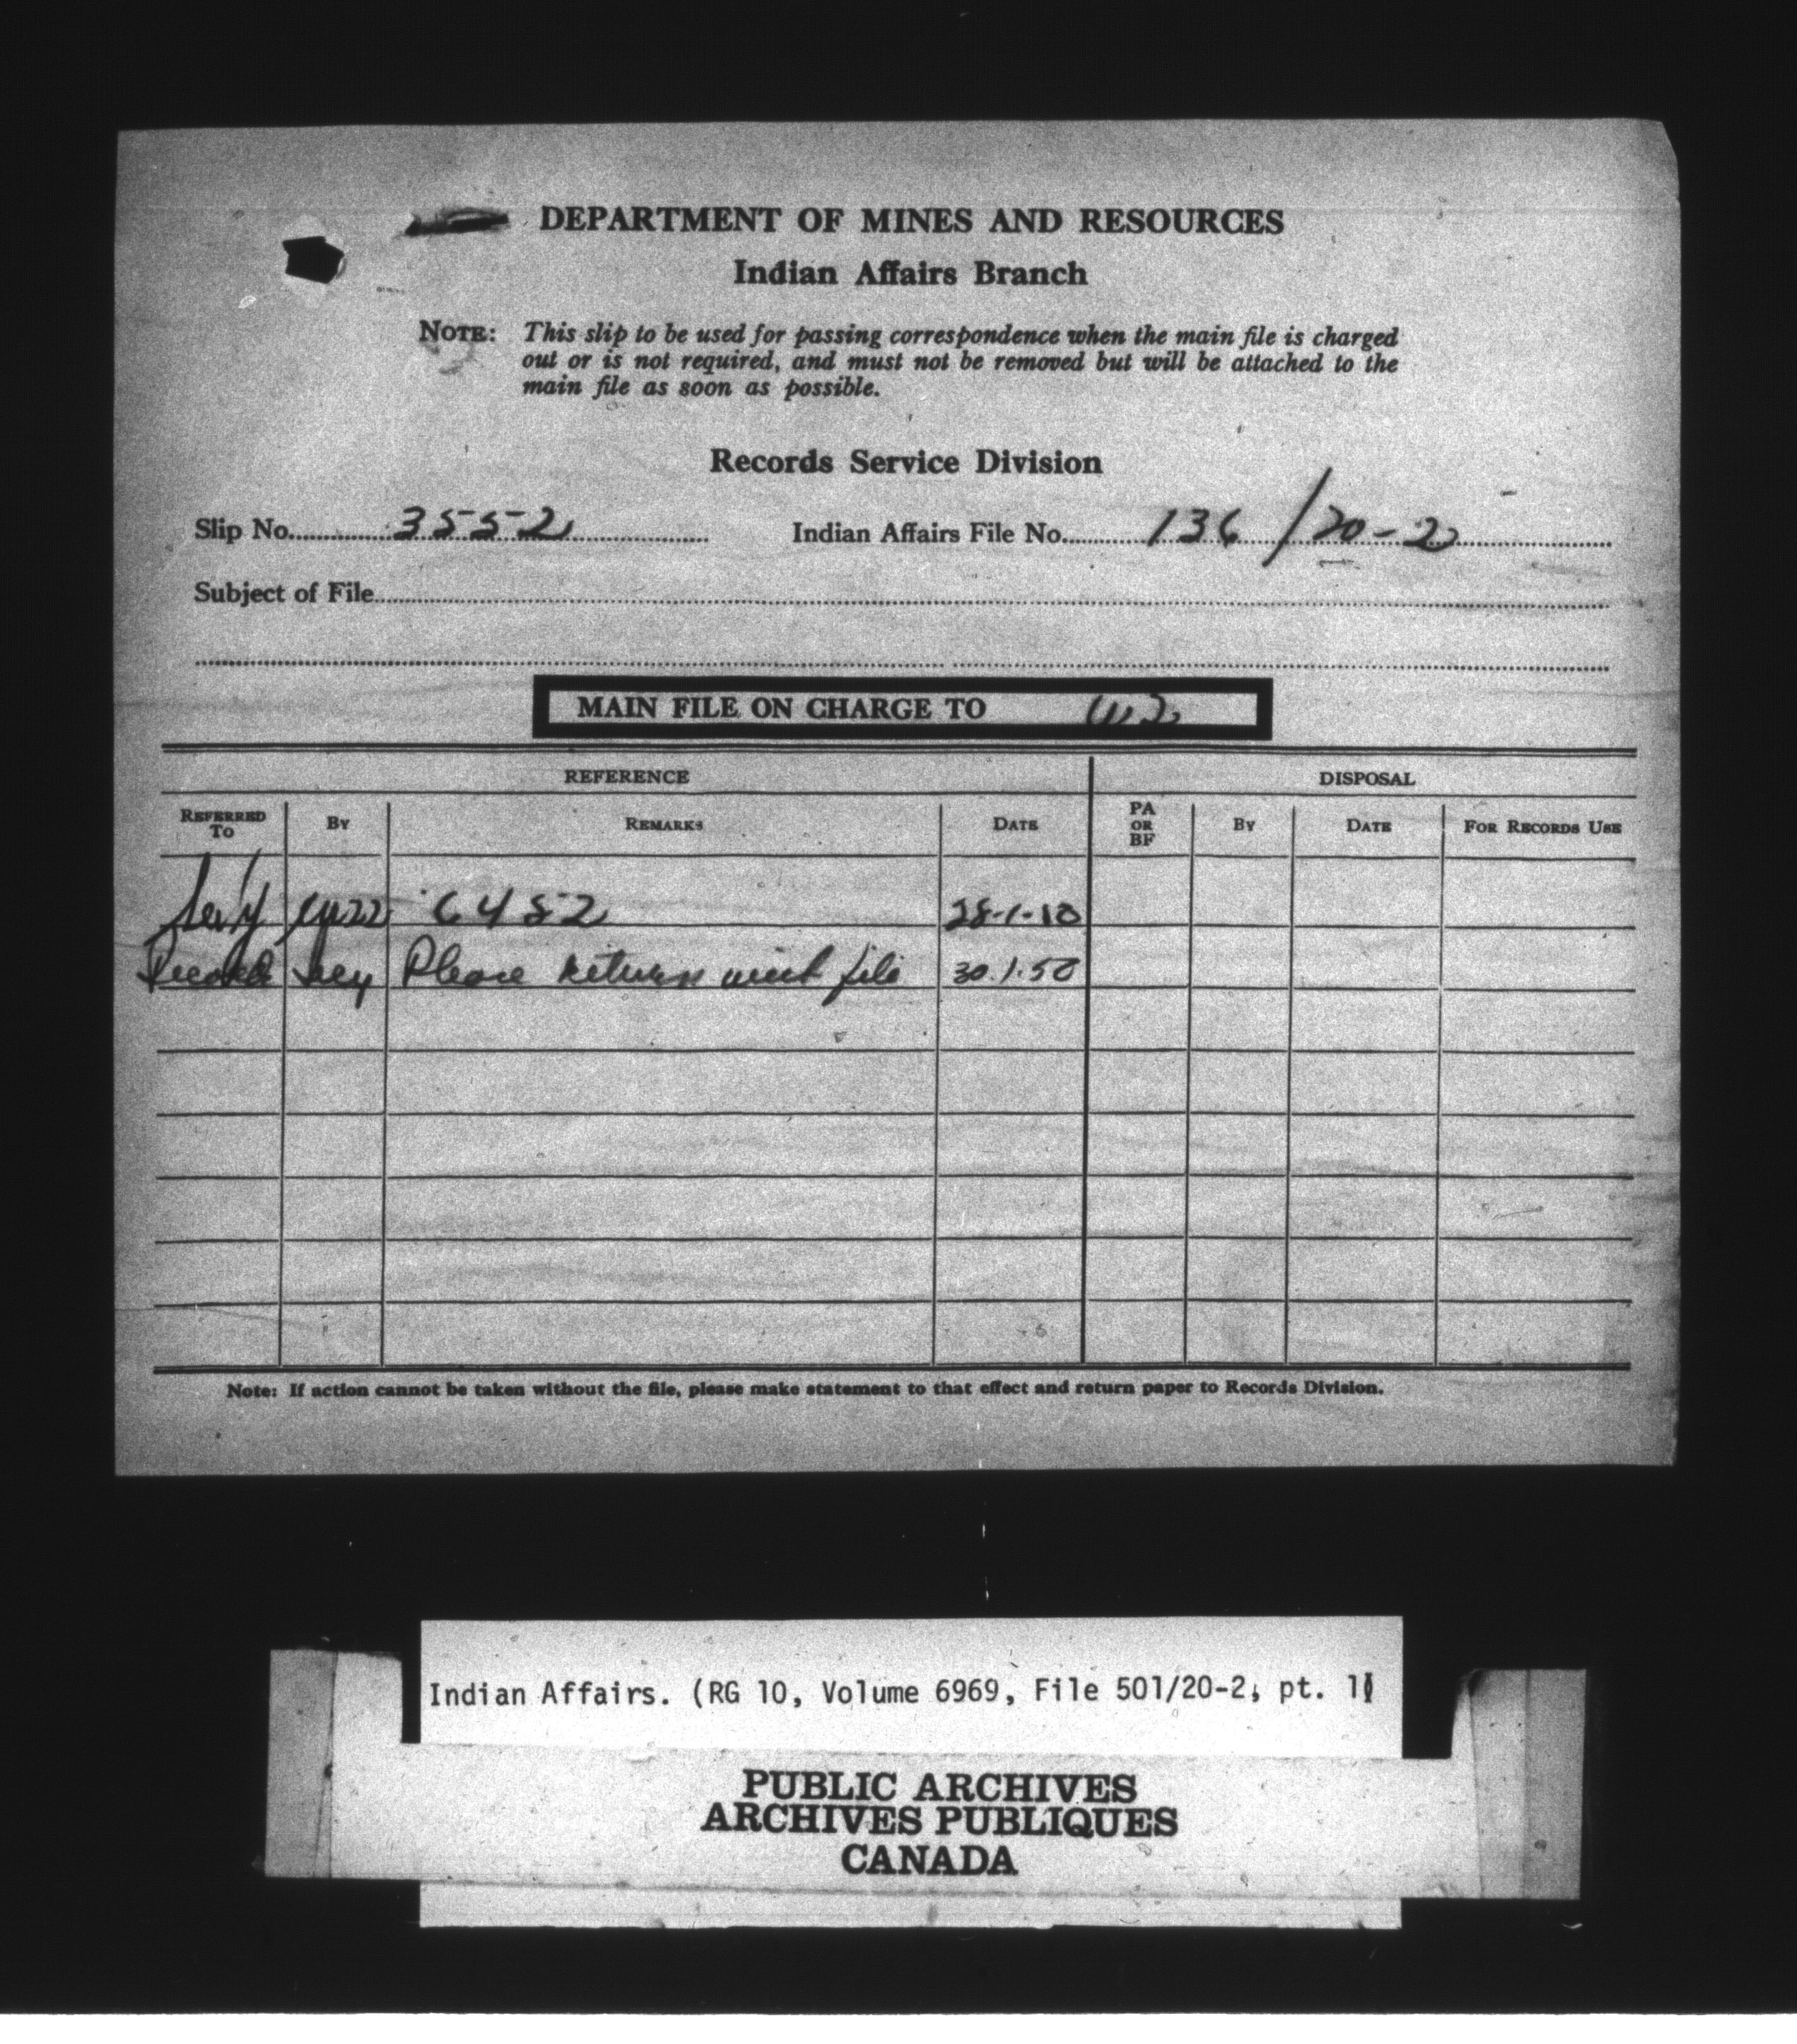 DEPARTMENT OF MINES AND RESOURCES
Indian Affairs Branch
NOTE: This slip to be used for passing correspondence when the main file is charged
out or is not required, and must not be removed but will be attached to the
main file as soon as possible.
Records Service Division
Slip No. 3552 Indian Affairs File No. 136/20-2
Subject of File
MAIN FILE ON CHARGE TO
REFERENCE DISPOSAL
REFERRED TO BY REMARKS DATE PA OR BF BY DATE FOR RECORDS USE
Sec'y 6452 28-1-50
Records Secy Please return with file 30.1.50
Note: If action cannot be taken without the file, please make statement to that effect and return paper to Records Division.
Indian Affairs. (RG 10, Volume 6969, File 501/20-2, pt. 1)
PUBLIC ARCHIVES
ARCHIVES PUBLIQUES
CANADA